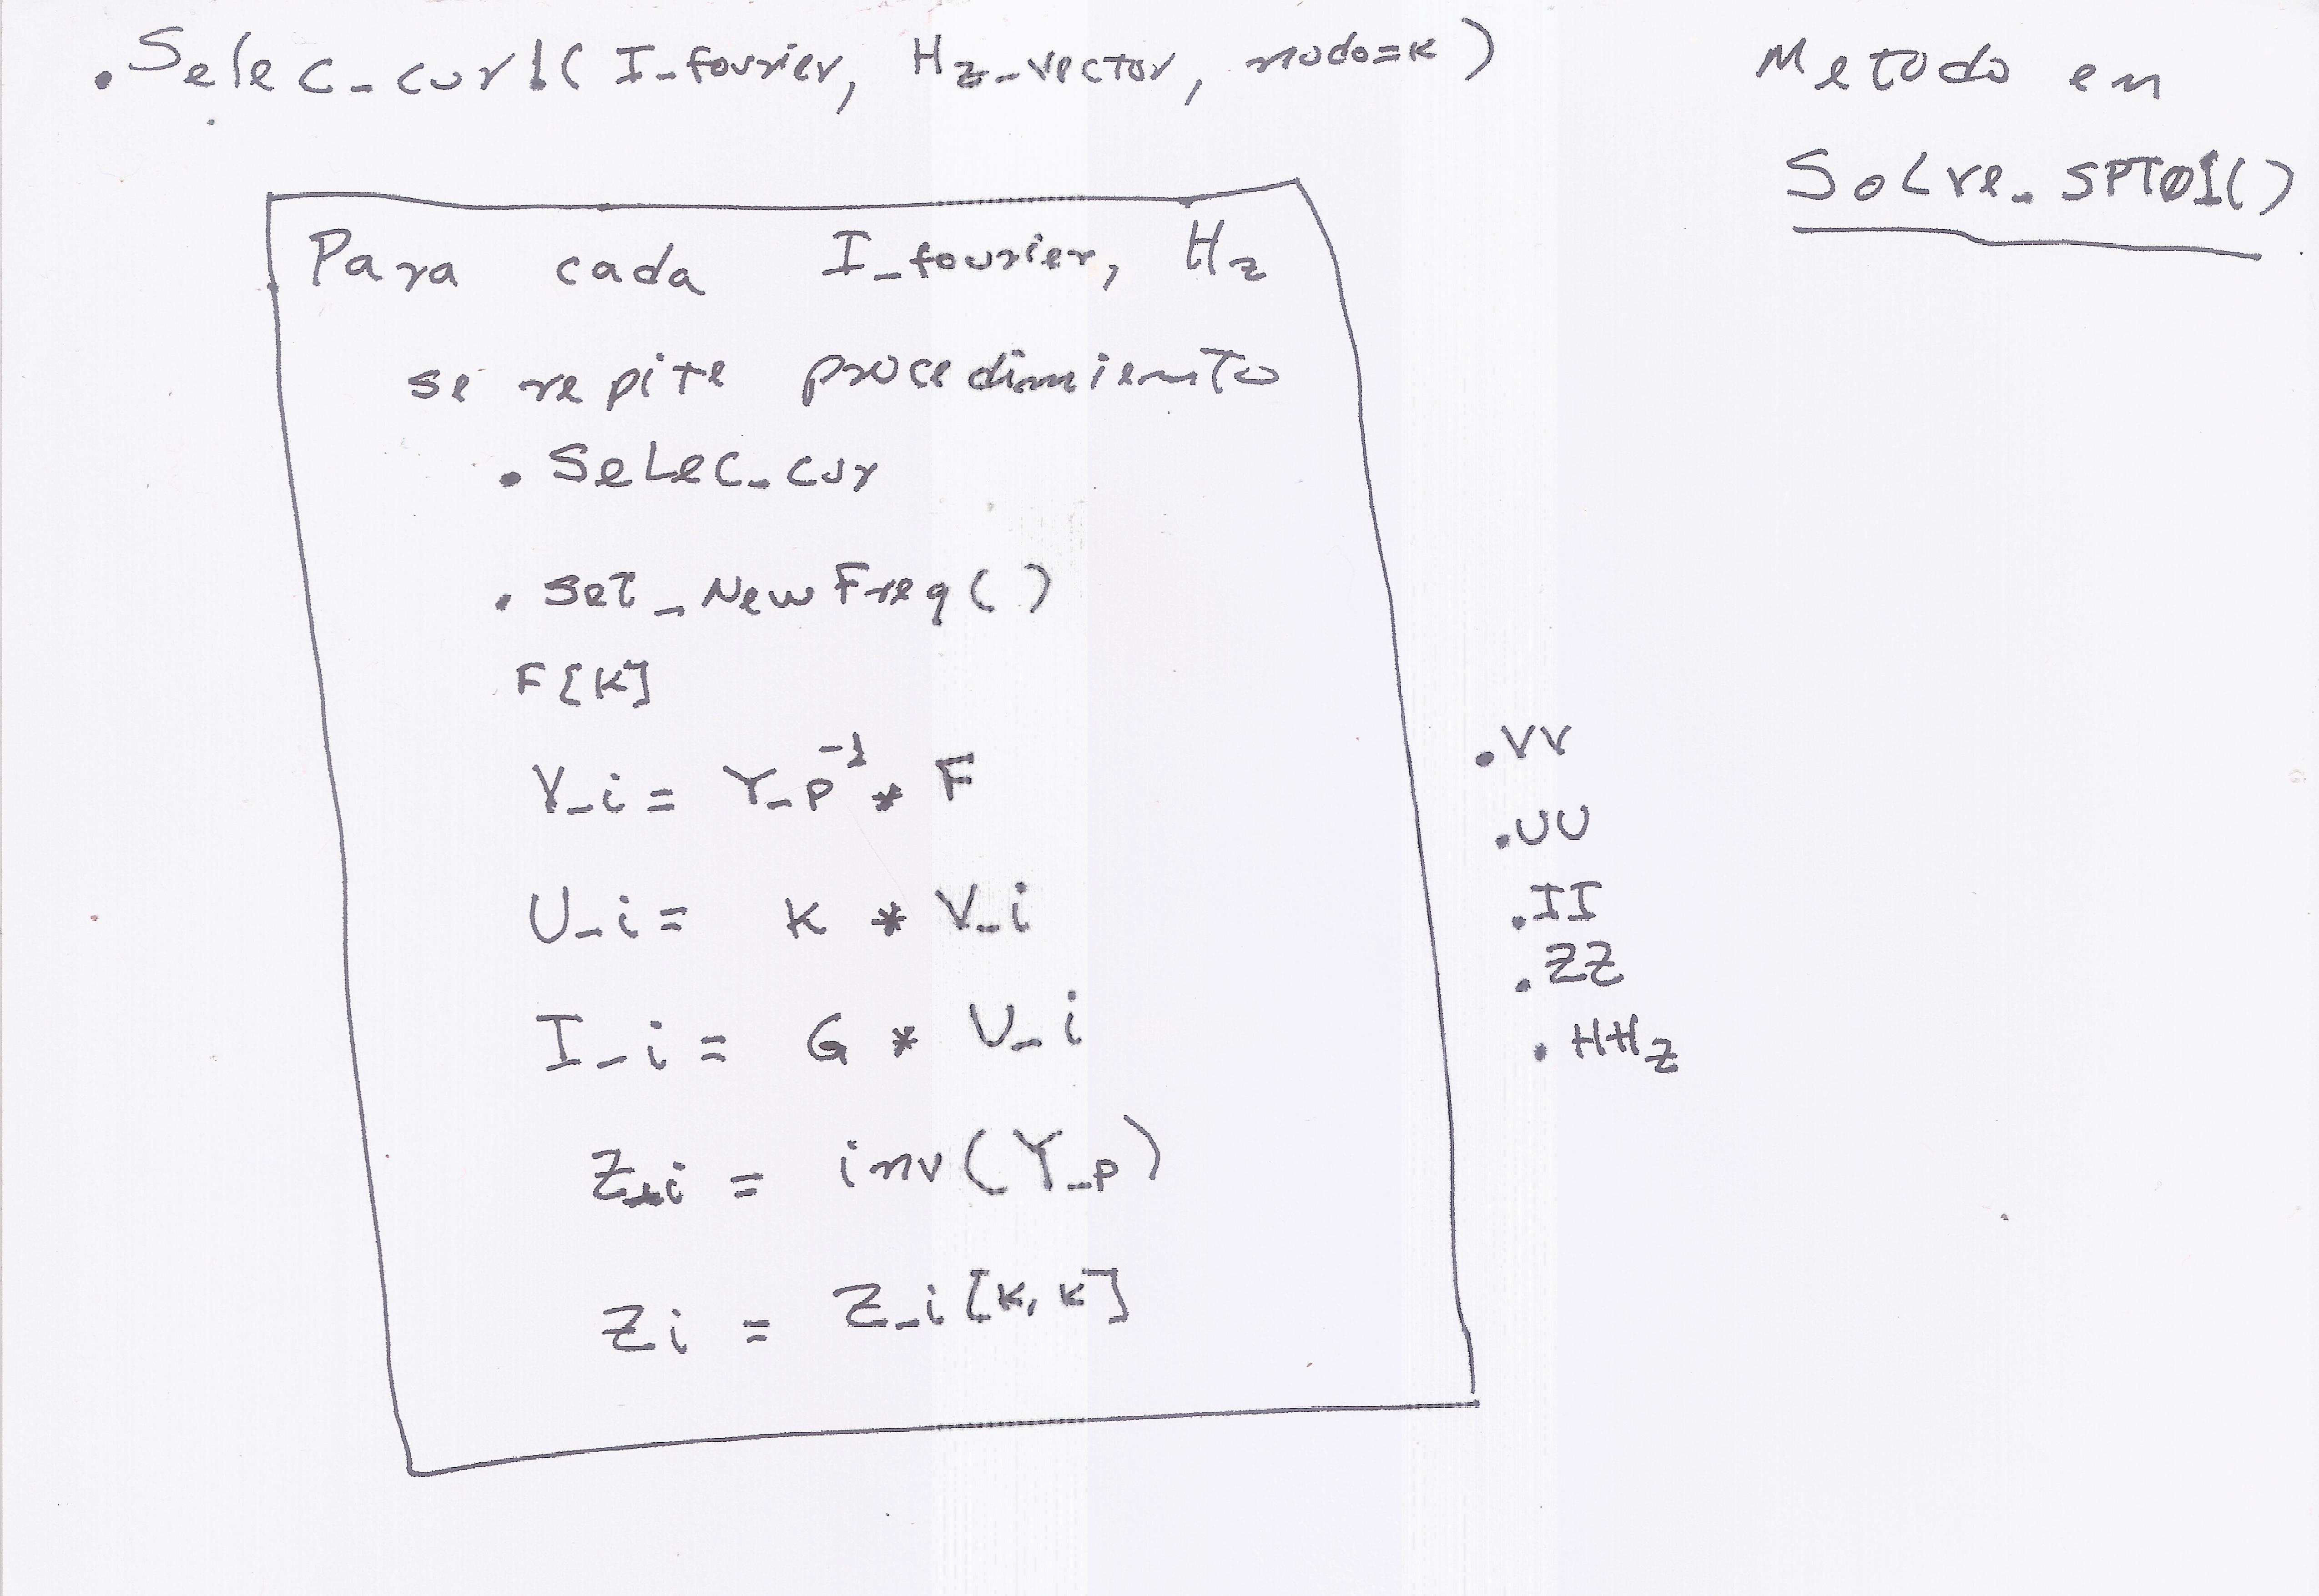 .Selec_cur1(I_fourier, Hz_vector, nudo=k)
Metodo en
Solve_SPT01()
Para cada I_fourier, Hz
se repite procedimiento
. Selec_cur
. Set_NewFreq()
F[K]
V_i = Y_p⁻¹ * F
U_i = K * V_i
I_i = G * U_i
Z_i = inv(Y_p)
Zi = Z_i[K,K]
.VV
.UU
.II
.ZZ
.HHz